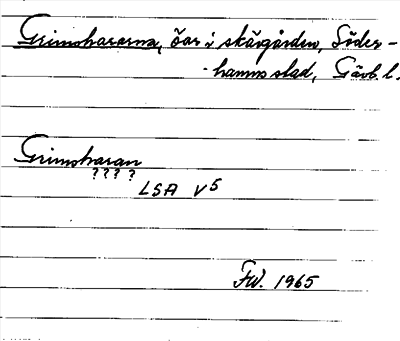 Grimshararna, öar i skärgården, Söder-
hamns stad, Gävb. l.
Grimsharan
? ? ? ?
LSA V5
FW. 1965